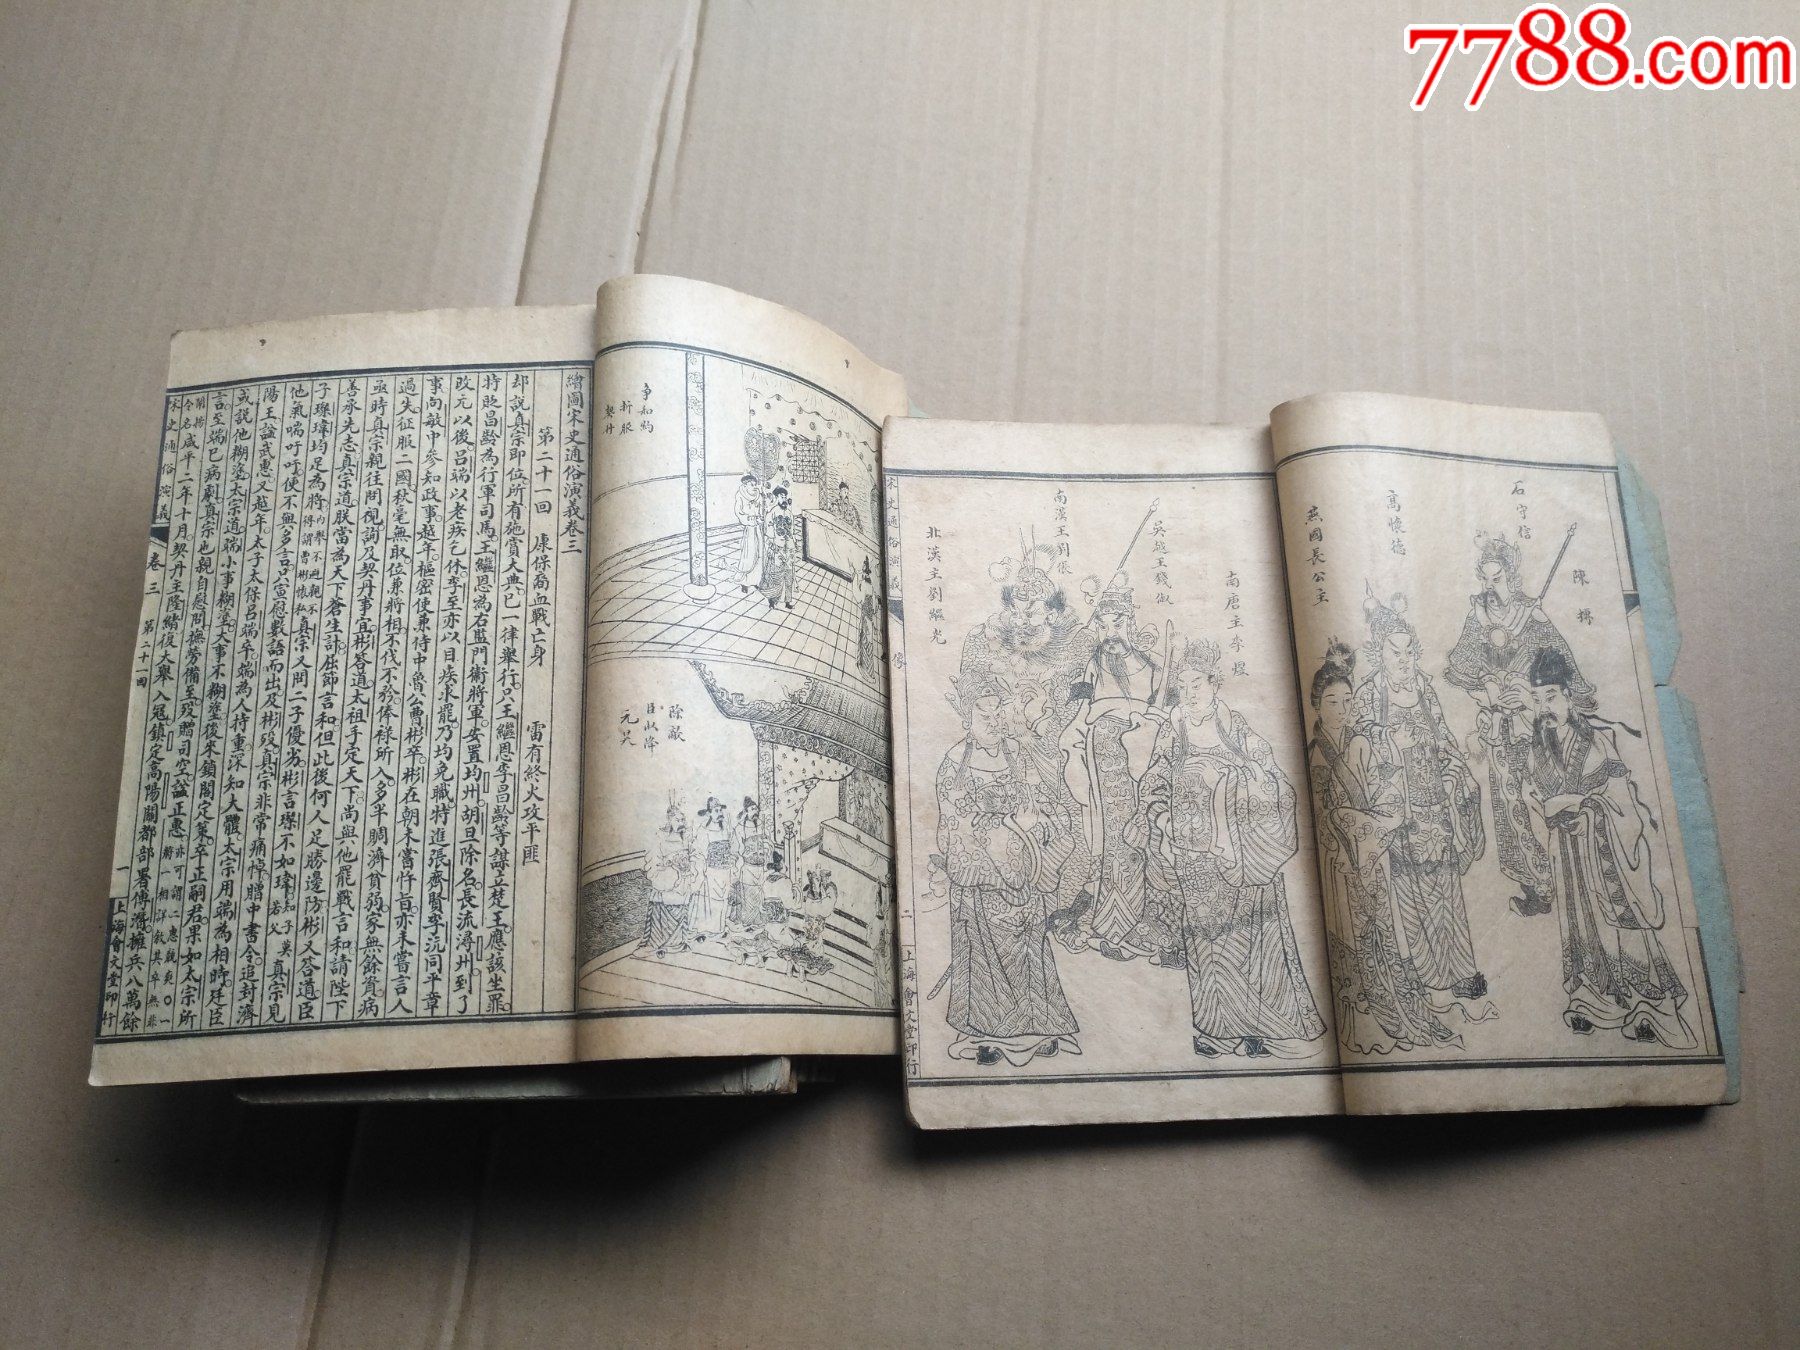 7788.com
繪圖宋史通俗演義卷三
第二十一回　康保裔血戰亡身　雷有終火攻平匪
却說真宗卽位所有施賞大典已一律舉行只王繼恩李昌齡等謀立楚王應該坐罪
特貶昌齡為行軍司馬王繼恩為右監門衛將軍安置均州胡旦除名長流潯州到了
改元以後呂端以老疾乞休李至亦以目疾求罷乃均免職特進張齊賢李沆同平章
事向敏中參知政事越年樞密使兼侍中魯公曹彬卒彬在朝未嘗忤旨亦未嘗言人
過失征服二國秋毫無取位兼將相不伐不矜俸祿所入多半賙濟貧弱家無餘資病
亟時真宗親往問視詢及契丹事宜彬答道太祖手定天下尚與他罷戰言和請陛下
善承先志真宗道朕當為天下蒼生計屈節言和但此後何人足勝邊防彬又答道臣
子璨瑋均足為將內舉不避親不得謂曹彬懷私真宗又問二子優劣彬言璨不如瑋知子莫若父真宗見
他氣喘吁吁便不與多言只宣慰數語而出及彬歿真宗非常痛悼贈中書令追封濟
陽王謚武惠又越年太子太保呂端卒端為人持重深知大體太宗用端為相時廷臣
或說他糊塗太宗道端小事糊塗大事不糊塗後來鎖閣定策卒正嗣君果如太宗所
言至端已病劇真宗也親自慰問撫勞備至歿贈司空謚正惠
令名咸平二年十月契丹主隆緒復大舉入寇鎮定高陽關都部署傅潛擁兵八萬餘
宋史通俗演義　卷三　第二十一回　一　上海會文堂印行
爭和約
折服
契丹
除敵
臣以降
元昊
石守信
陳摶
高懷德
燕國長公主
南唐主李煜
吳越王錢俶
南漢主劉鋹
北漢主劉繼元
宋史通俗演義　像　二　上海會文堂印行